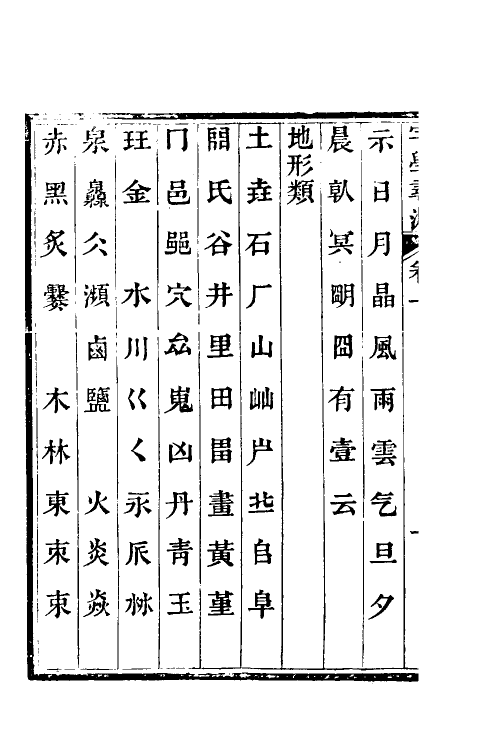 示日月晶風雨雲气旦夕
晨倝冥朙囧有壹云
地形類
土垚石厂山屾屵丘𠂤阜
䦲氏谷井里田畕畫黃堇
冂邑𨛜穴厽嵬凶丹青玉
玨金 水川巜𡿨永𠂢沝
泉灥仌瀕鹵鹽 火炎焱
赤黑炙爨 木林東朿束